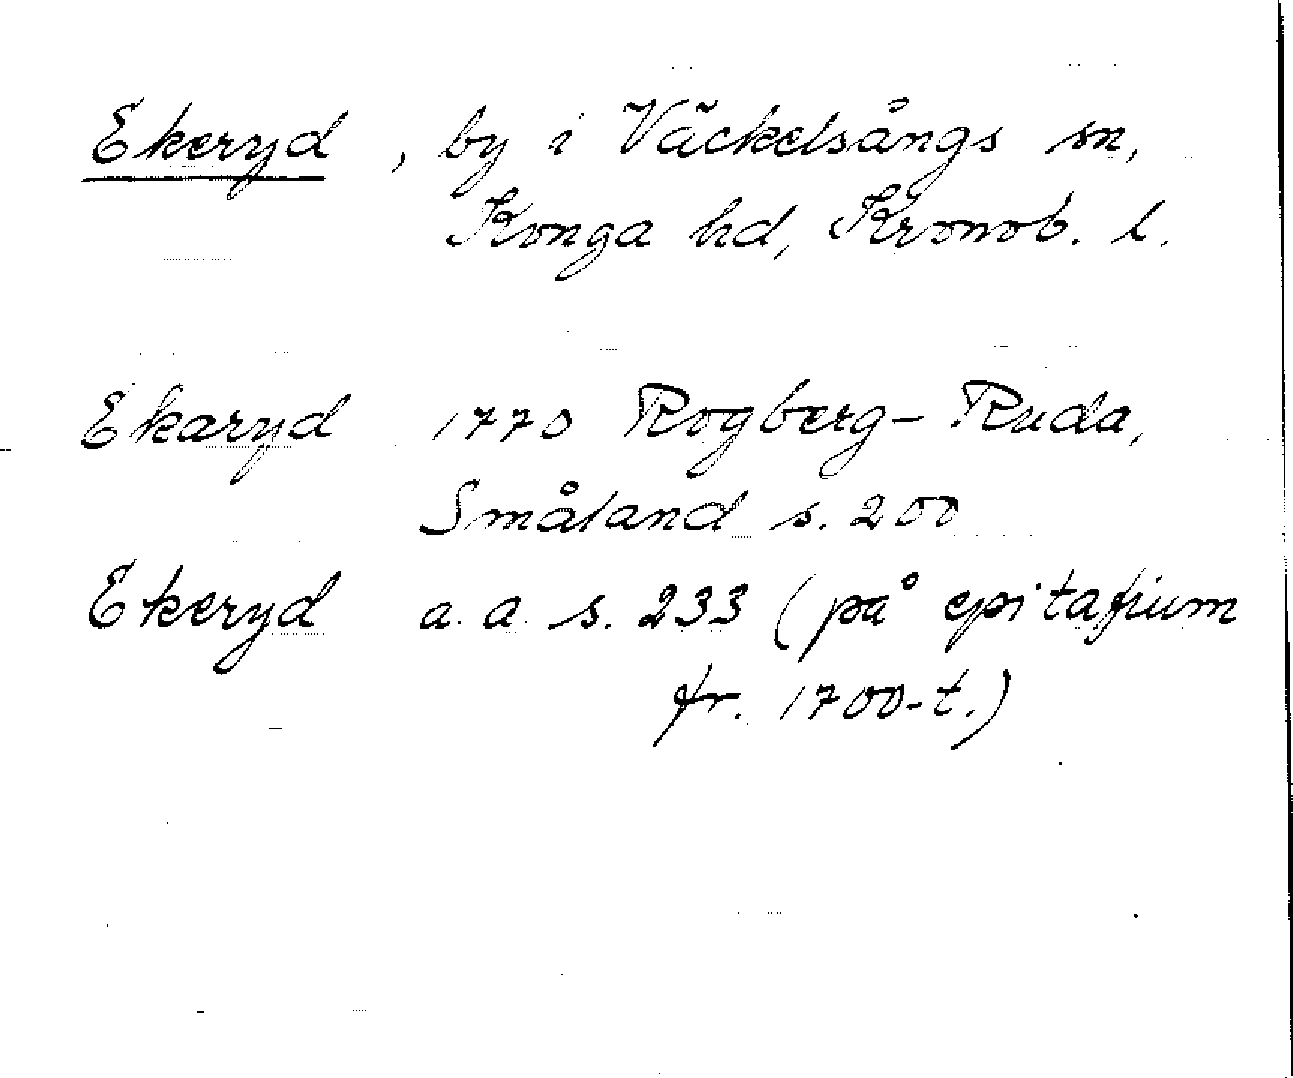 Ekeryd, by i Väckelsångs sn,
Konga hd, Kronob. l.
Ekaryd 1770 Rogberg-Ruda,
Småland s. 200
Ekeryd a. a. s. 233 (på epitafium
fr. 1700-t.)